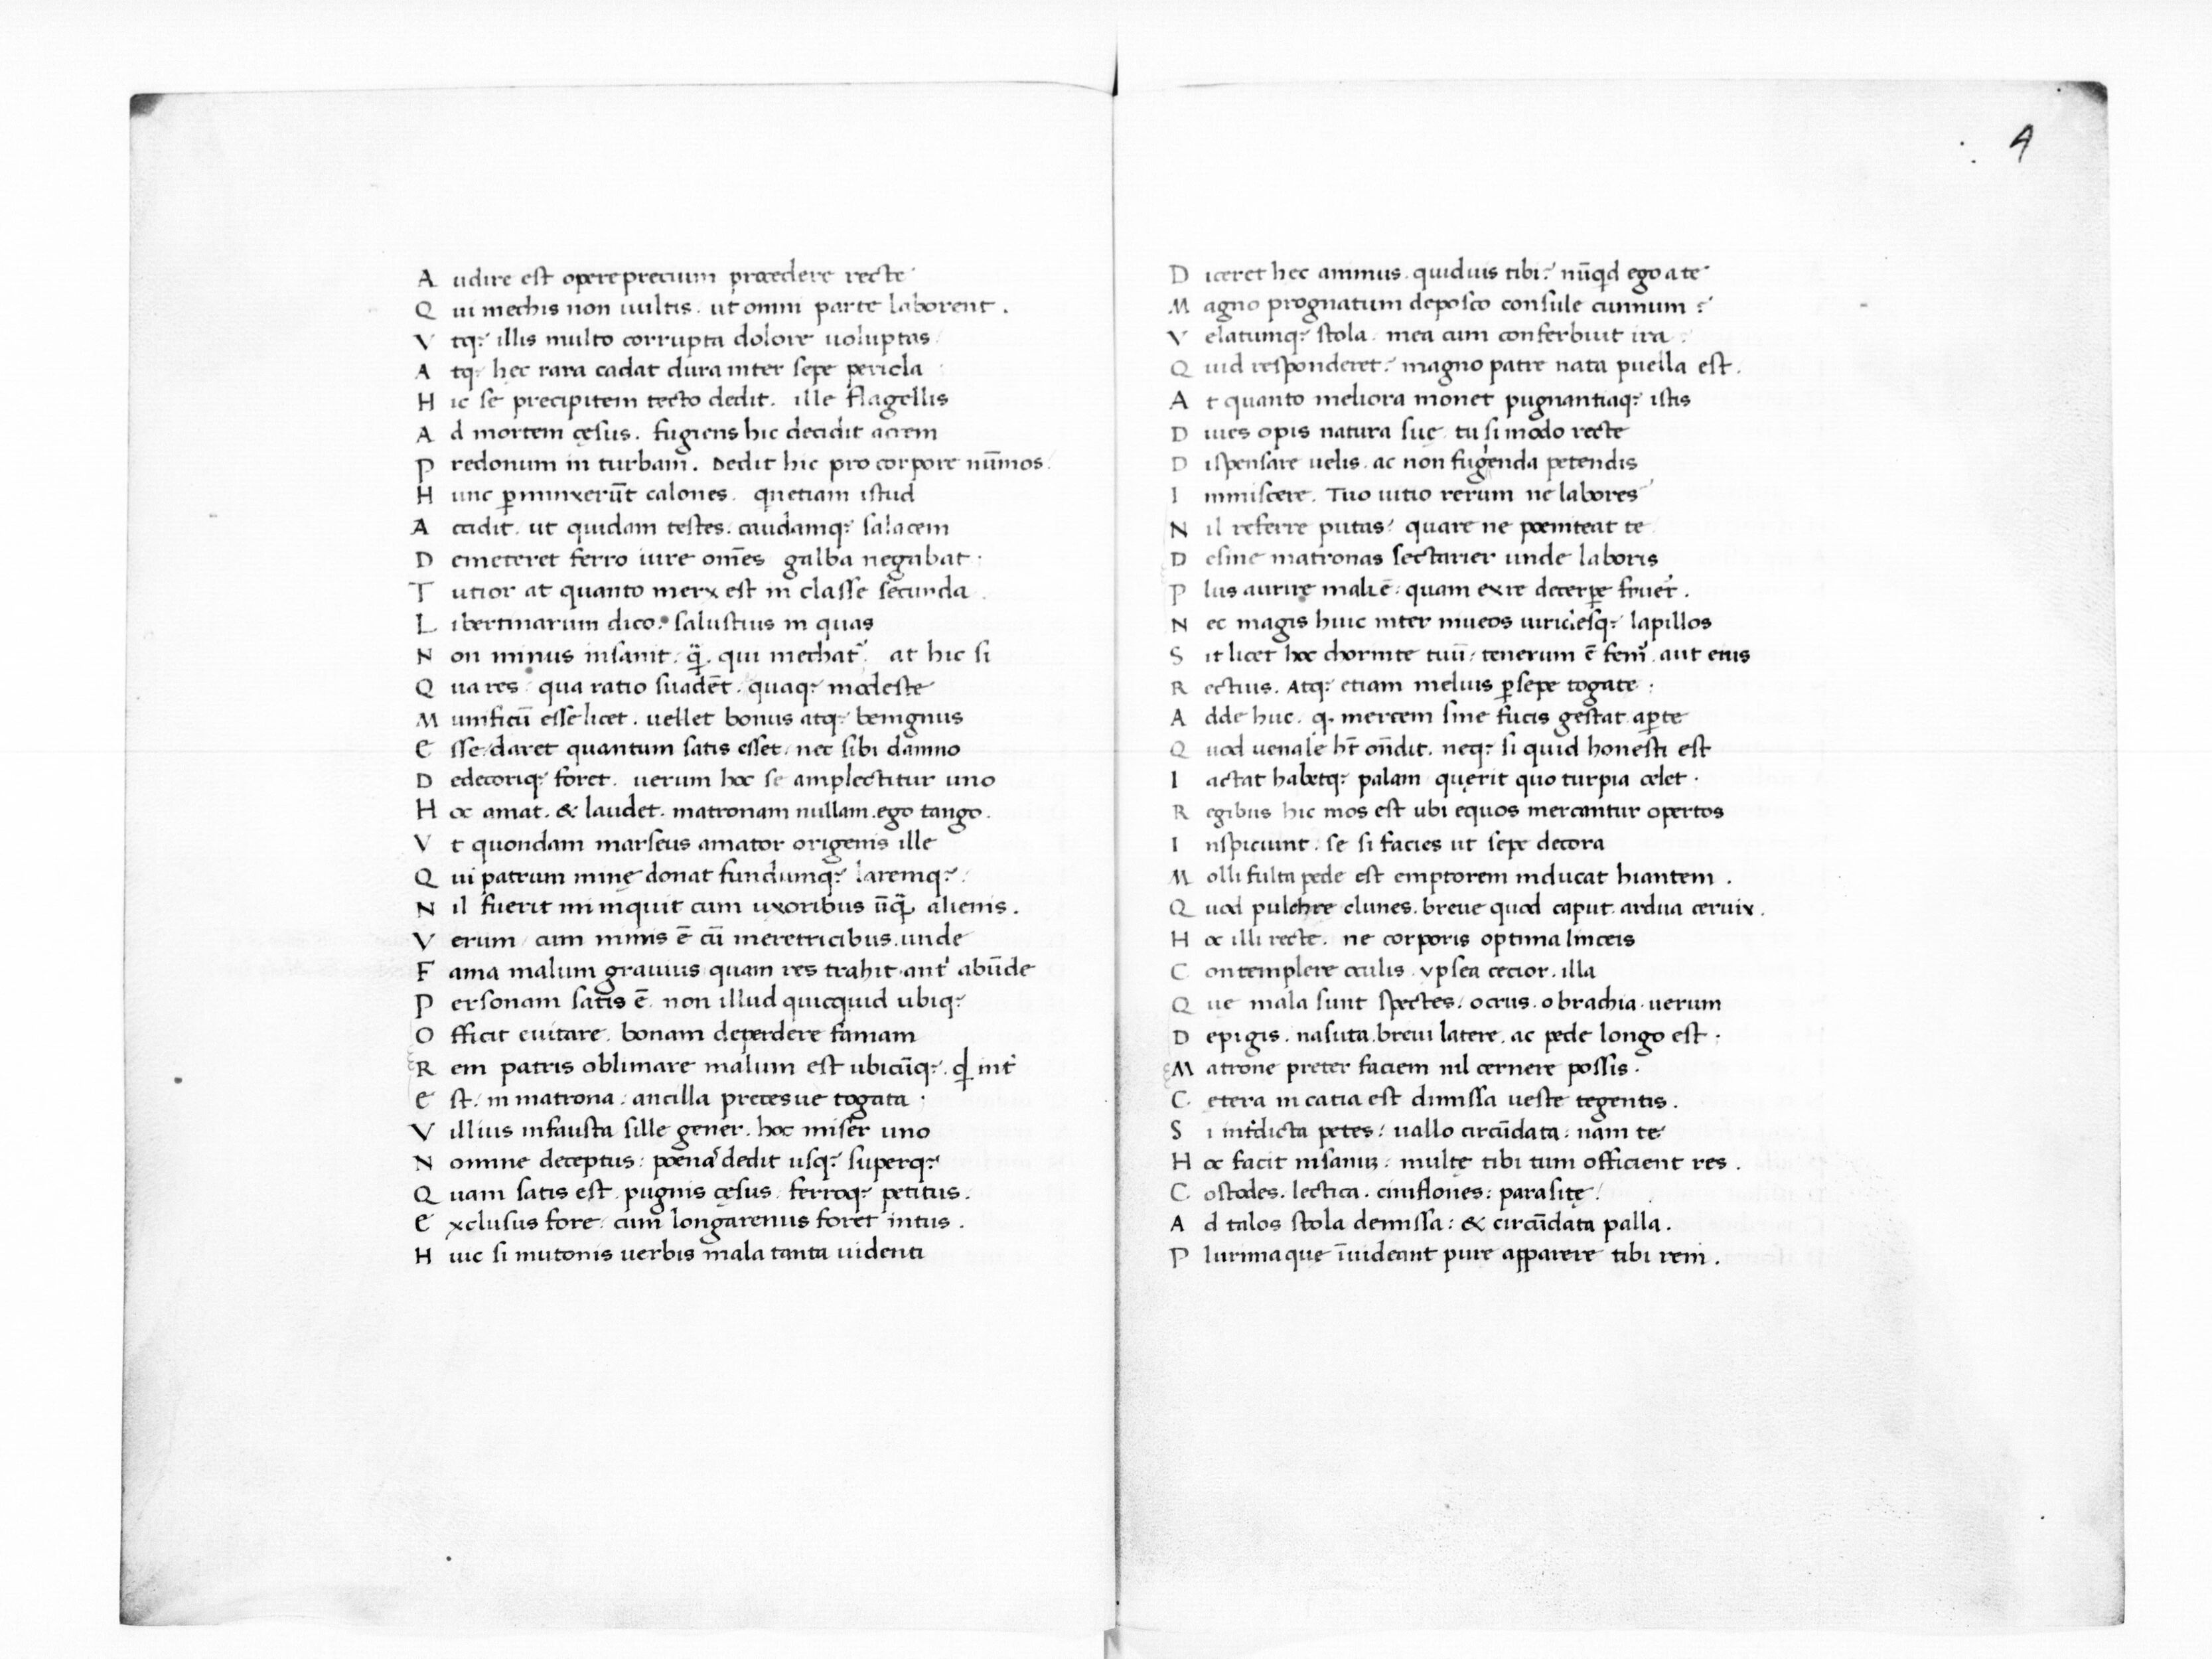 Audire est opereprecium procedere recte
Qui mechis non uultis. ut omni parte laborent.
Vtq; illis multo corrupta dolore uoluptas
Atq; hęc rara cadat dura inter sepe pericla
Hic se precipitem tecto dedit. ille flagellis
Ad mortem cęsus. fugiens hic decidit acrem
Predonum in turbam. Dedit hic pro corpore nūmos.
Hunc ꝑminxerūt calones. quetiam istud
Accidit. ut quidam testes. caudamq; salacem
Demeteret ferro iure om̄es galba negabat.
Tutior at quanto merx est in classe secunda.
Libertinarum dico. salustius in quas
Non minus insanit. q̄. qui mechat᷒. at hic si
Qua res. qua ratio suadēt. quaq; modeste
Munificū esse licet. uellet bonus atq; benignus
Esse daret quantum satis esset. nec sibi damno
Dedecoriq; foret. uerum hoc se amplectitur uno
Hoc amat. & laudet. matronam nullam. ego tango.
Vt quondam marseus amator origenis ille
Qui patrum minę donat fundumq; laremq;
Nil fuerit mi inquit cum uxoribus ūq̄ alienis.
Verum cum mimis ē cū meretricibus. unde
Fama malum grauius quam res trahit. ant᷒ abūde
Personam satis ē. non illud quicquid ubiq;
Officit euitare. bonam deperdere famam
Rem patris oblimare malum est ubicūq;. qd int᷒
Est. in matrona. ancilla precesue togata.
Villius infausta sille gener. hoc miser uno
Nomine deceptus: poena dedit usq; superq;
Quam satis est. pugnis cęsus. ferroq; petitus.
Exclusus fore. cum longarenus foret intus.
Huic si mutonis uerbis mala tanta uidenti
4
Diceret hec animus. quid uis tibi? nūqd ego a te
Magno prognatum deposco consule cunnum?
Velatumq; stola. mea cum conferbuit ira.
Quid responderet? magno patre nata puella est.
At quanto meliora monet pugnantiaq; istis
Diues opis natura suę. tu si modo recte
Dispensare uelis. ac non fugienda petendis
Immiscere. Tuo uitio rerum ne labores
Nil referre putas? quare ne poeniteat te
Desine matronas sectarier unde laboris
Plus aurire mali ē. quam ex re decerpe fruct᷒.
Nec magis huic inter niueos uiridesq; lapillos
Sit licet hoc chorinte tuū. tenerum ē fem᷒. aut eius
Rectius. Atq; etiam melius ꝑsepe togate:
Adde huc. q. mercem sine fucis gestat aꝑte
Quod uenale ht̄ on̄dit. neq; si quid honesti est
Iactat habetq; palam querit quo turpia celet.
Regibus hic mos est ubi equos mercantur opertos
Inspiciunt. se si facies ut sepe decora
Molli fulta pede est emptorem inducat hiantem.
Quod pulchre clunes. breue quod caput. ardua ceruix.
Hoc illi recte. ne corporis optima linceis
Contemplere oculis. ypsea cecior. illa
Que mala sunt spectes. o crus. o brachia. uerum
Depigis. nasuta. breui latere. ac pede longo est.
Matrone preter faciem nil cernere possis.
Cetera ni catia est dimissa ueste tegentis.
Si int᷒dicta petes. uallo circūdata: nam te
Hoc facit insanū: multę tibi tum officient res.
Costodes. lectica. ciniflones: parasitę.
Ad talos stola demissa: & circūdata palla.
Plurima que īuideant pure apparere tibi rem.